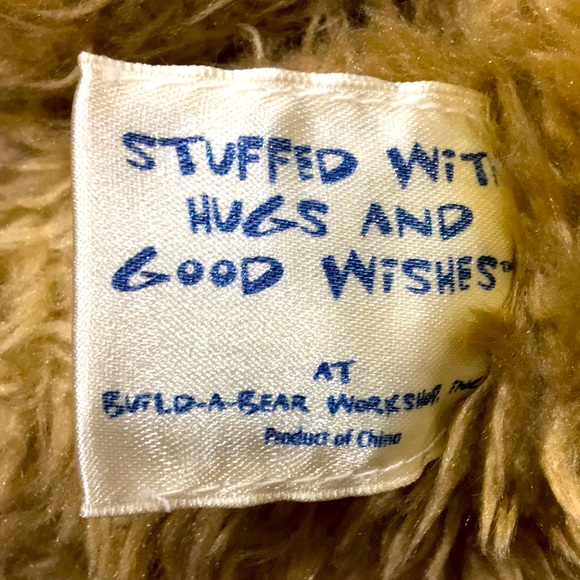 STUFFED WITH
HUGS AND
GOOD WISHES™
AT
BUILD-A-BEAR WORKSHOP, INC
Product of China